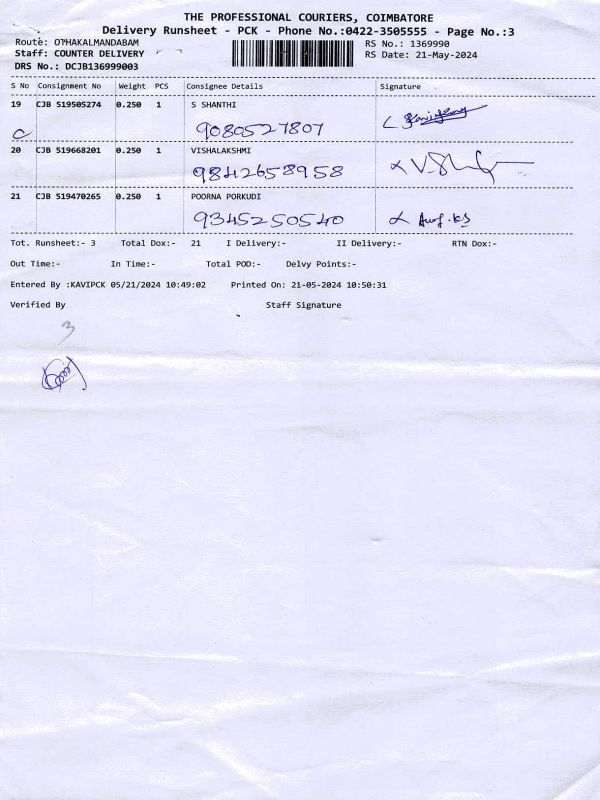 THE PROFESSIONAL COURIERS, COIMBATORE
Delivery Runsheet - PCK - Phone No.:0422-3505555 - Page No.:3
Route: OTHAKALMANDABAM RS No.: 1369990
Staff: COUNTER DELIVERY RS Date: 21-May-2024
DRS No.: DCJB136999003
S No Consignment No Weight PCS Consignee Details Signature
19 CJB 519505274 0.250 1 S SHANTHI
9080527807
20 CJB 519668201 0.250 1 VISHALAKSHMI
9842658958
21 CJB 519470265 0.250 1 POORNA PORKUDI
9345250540
Tot. Runsheet:- 3 Total Dox:- 21 I Delivery:- II Delivery:- RTN Dox:-
Out Time:- In Time:- Total POD:- Delvy Points:-
Entered By :KAVIPCK 05/21/2024 10:49:02 Printed On: 21-05-2024 10:50:31
Verified By Staff Signature
3